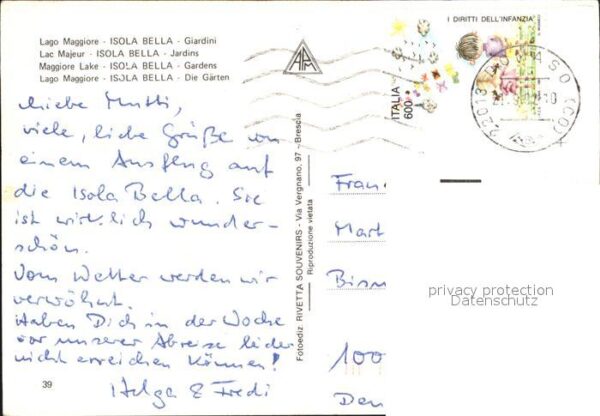 Lago Maggiore - ISOLA BELLA - Giardini
Lac Majeur - ISOLA BELLA - Jardins
Maggiore Lake - ISOLA BELLA - Gardens
Lago Maggiore - ISOLA BELLA - Die Gärten
Liebe Mutti,
viele, liebe Grüße von
einem Ausflug auf
die Isola Bella. Sie
ist wirklich wunder-
schön.
Vom Wetter werden wir
verwöhnt.
Haben Dich in der Woche
vor unserer Abreise leider
nicht erreichen können!
Helga & Fredi
39
Fotoediz. RIVETTA SOUVENIRS - Via Vergnano, 97 - Brescia
Riproduzione vietata
I DIRITTI DELL'INFANZIA
ITALIA
600
22018 (CO)
Fran
Mart
Bism
100
Den
privacy protection
Datenschutz